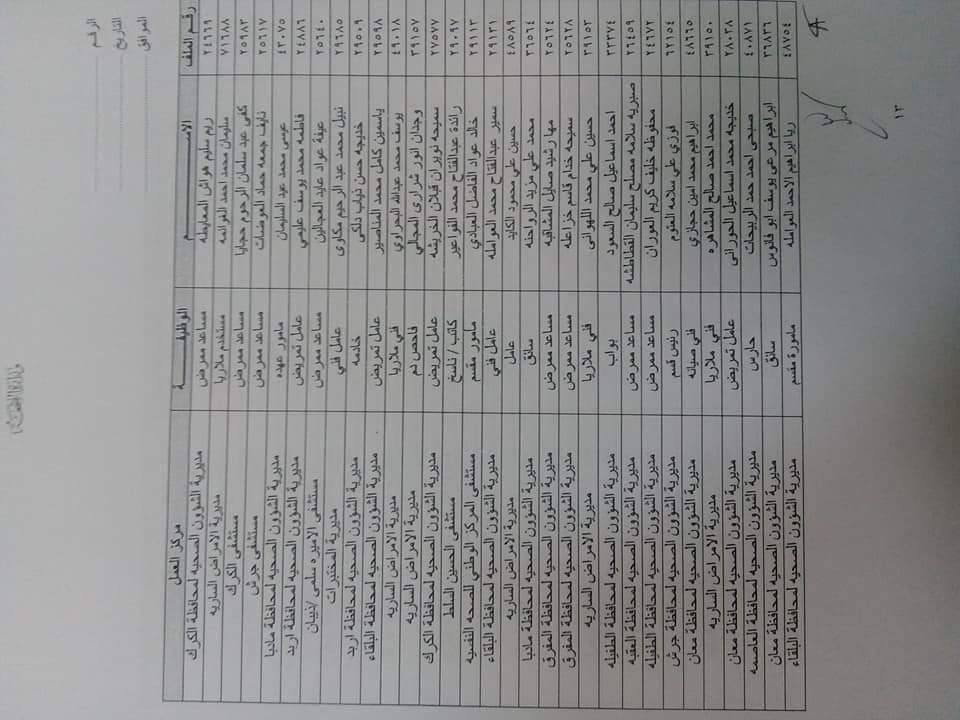 الرقم
التاريخ
الموافق
رقم الملف الاســـــم الوظيفـــــة مركز العمل
٢٤٦٦٩ ريم سليم هواش المعايطه مساعد ممرض مديرية الشؤون الصحيه لمحافظة الكرك
٧١٦٨٨ سليمان محمد احمد الغرانمه مستخدم ملاريا مديرية الامراض الساريه
٢٥٩٨٣ كفى عبد سلمان الرحوم حجايا مساعد ممرض مستشفى الكرك
٢٥٦١٧ نايف جمعه حماد العوضات مساعد ممرض مستشفى جرش
٤٣٠٧٥ عيسى محمد عبد السليمان مامور عهده مديرية الشؤون الصحيه لمحافظة مادبا
٢٤٨٨٦ فاطمه محمد يوسف عليمي عامل تمريض مديرية الشؤون الصحيه لمحافظة اربد
٢٥٦٤٠ عيفة عواد عايد العجالين مساعد ممرض مستشفى الاميره سلمى /ذيبان
٢٩٦٨٥ نبيل محمد عبد الرحيم مكاوى عامل فني مديرية المختبرات
٢٩٥٠٩ خديجه حسن ذياب دلكى خادمه مديرية الشؤون الصحيه لمحافظة اربد
٢٩٥٩٨ ياسمين كامل محمد المناصير عامل تمريض مديرية الشؤون الصحيه لمحافظة البلقاء
٤٩٠١٨ يوسف محمد عبدالله البحراوي فني ملاريا مديرية الامراض الساريه
٣٩١٥٧ وجدان الور شراري المجالي فاحص دم مديرية الامراض الساريه
٢٧٥٧٧ سميحه نويران قبلان الخريشه عامل تمريض مديرية الشؤون الصحيه لمحافظة الكرك
٢٩٠٩٧ رائدة عبدالفتاح محمد الفواعير كاتب / ناسخ مستشفى الحسين السلط
٢٩١١٣ خالد عواد الفاضل العبادي مامور مقسم مستشفى المركز الوطني للصحه النفسيه
٢٩١٣١ سمير عبدالفتاح محمد العوامله عامل فني مديرية الشؤون الصحيه لمحافظة البلقاء
٤٨٥٨٩ حسين علي محمود الكايد عامل مديرية الامراض الساريه
٣٦٥٦٤ محمد علي مزيد الرواحنه سائق مديرية الشؤون الصحيه لمحافظة مادبا
٢٥٦٢٤ مها رشيد صايل المشاقبه مساعد ممرض مديرية الشؤون الصحيه لمحافظة المفرق
٢٥٦٢٨ سميحه ختام قاسم خزاعله مساعد ممرض مديرية الشؤون الصحيه لمحافظة المفرق
٣٩١٥٣ حسين علي محمد اللهوانى فني ملاريا مديرية الامراض الساريه
٣٣٣٧٤ احمد اسماعيل صالح السعود بواب مديرية الشؤون الصحيه لمحافظة الطفيله
٢٦٤٥٩ صبريه سلامه مصلح سليمان القطاطشه مساعد ممرض مديرية الشؤون الصحيه لمحافظة العقبه
٢٤٦٧٢ محفوظه خليف كريم العوران مساعد ممرض مديرية الشؤون الصحيه لمحافظة الطفيله
٦٢١٥٤ فوزي علي سلامه العتوم رئيس قسم مديرية الشؤون الصحيه لمحافظة جرش
٤٨٦٦٥ ابراهيم محمد امين حجازي فني صيانه مديرية الشؤون الصحيه لمحافظة معان
٣٩١٥٠ محمد احمد صالح المشاهره فني ملاريا مديرية الامراض الساريه
٢٨٠٣٨ خديجه محمد اسماعيل الحورانى عامل تمريض مديرية الشؤون الصحيه لمحافظة معان
٤٠٨٧١ صبحى احمد حمد الربيحات حارس مديرية الشؤون الصحيه لمحافظة العاصمه
٣٦٨٣٦ ابراهيم مرعى يوسف ابو فانوس سائق مديرية الشؤون الصحيه لمحافظة معان
٤٨٧٥٤ ريا ابراهيم الاحمد العوامله مامورة مقسم مديرية الشؤون الصحيه لمحافظة البلقاء
١٣